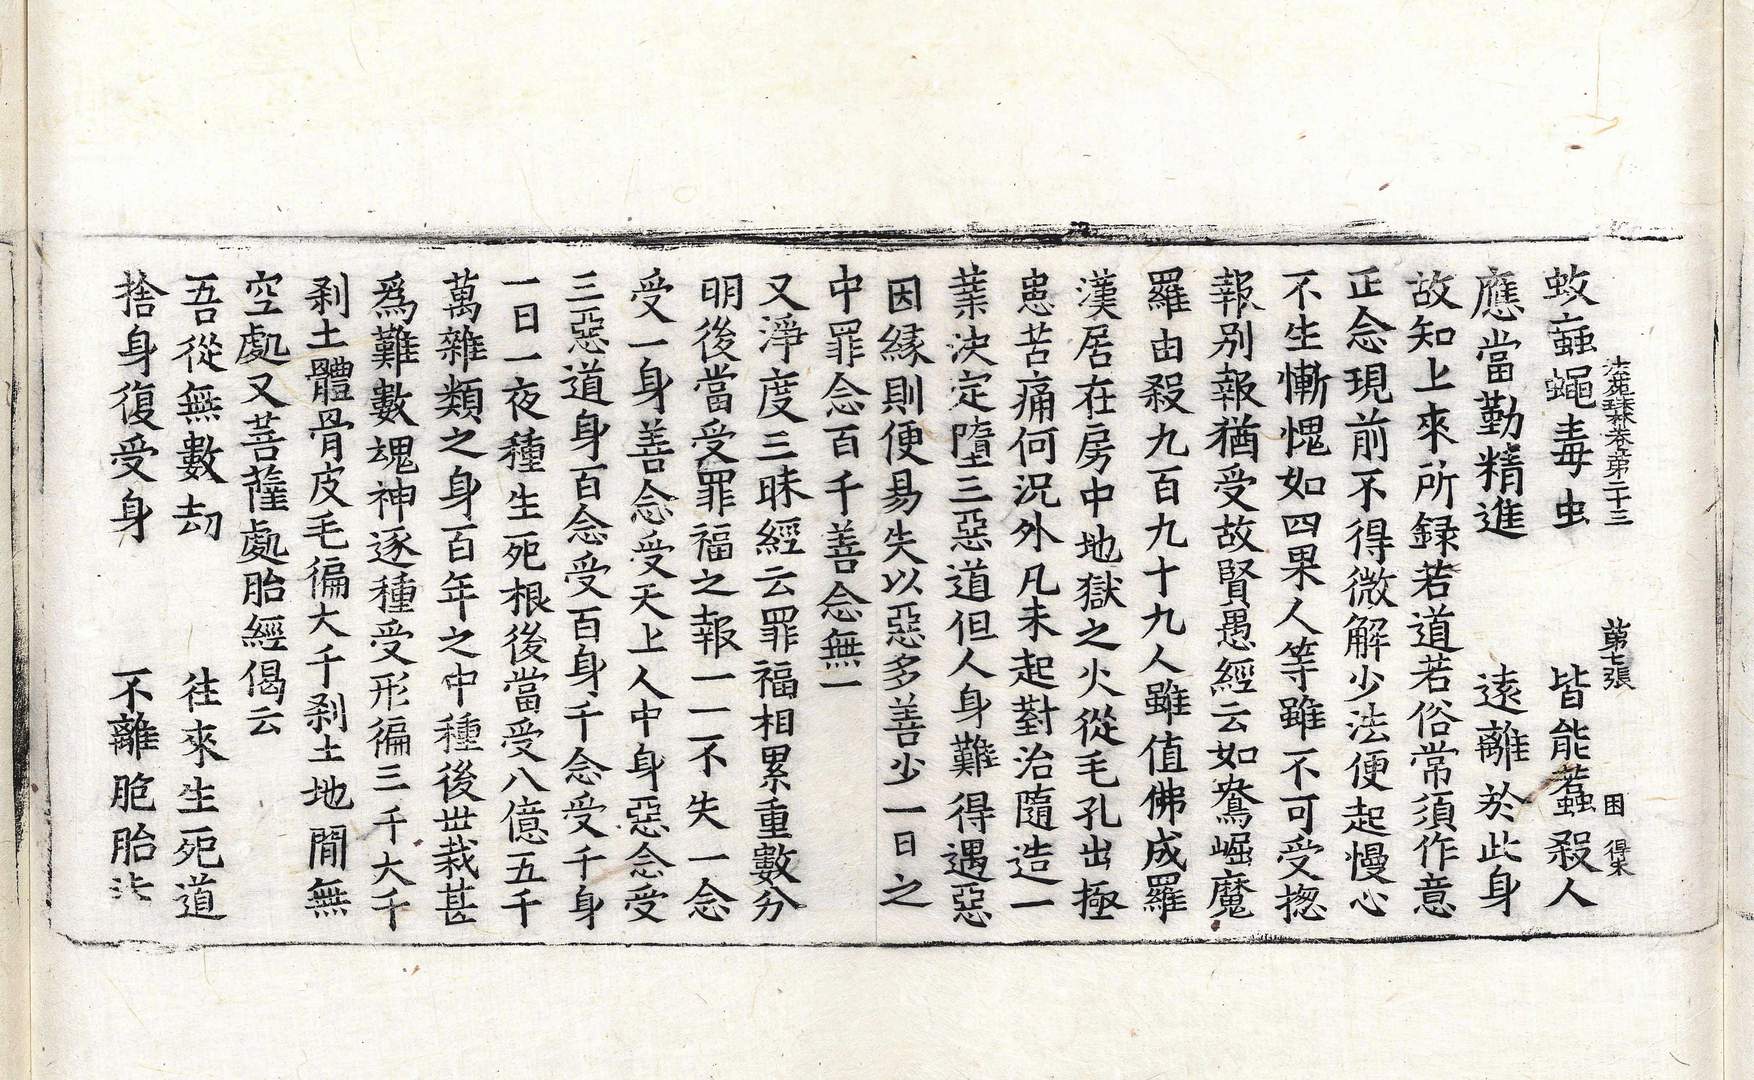 蚊蝱蠅毒虫　皆能若蝨殺人
法苑珠林卷第二十三　第七張　困　得宋
應當勤精進　遠離於此身
故知上來所録若道若俗常須作意
正念現前不得微解少法便起慢心
不生慚愧如四果人等雖不可受揔
報别報猶受故賢愚經云如鴦崛魔
羅由殺九百九十九人雖值佛成羅
漢居在房中地獄之火從毛孔出極
患苦痛何況外凡未起對治隨造一
業決定墮三惡道但人身難得遇惡
因緣則便易失以惡多善少一日之
中罪念百千善念無一
又淨度三昧經云罪福相累重數分
明後當受罪福之報一一不失一念
受一身善念受天上人中身惡念受
三惡道身百念受百身千念受千身
一日一夜種生死根後當受八億五千
萬雜類之身百年之中種後世栽甚
爲難數魂神逐種受形徧三千大千
刹土體骨皮毛徧大千刹土地間無
空處又菩薩處胎經偈云
吾從無數劫　往來生死道
捨身復受身　不離胞胎法